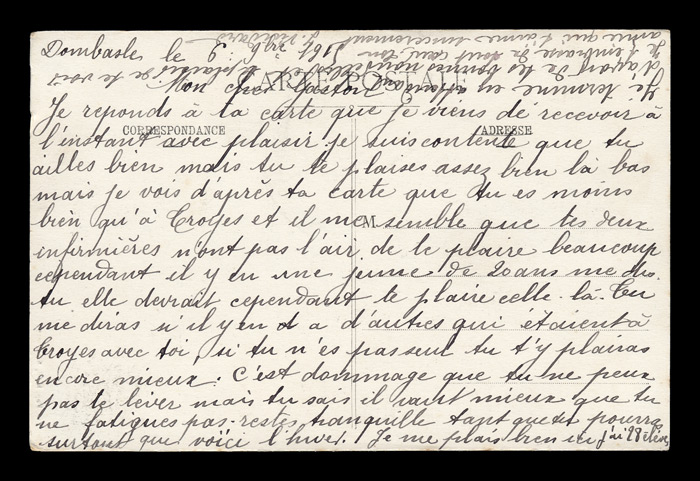 Dombasle, le 9
CARTE POSTALE
Mon cher Gaston
Je reponds à la carte que je viens de recevoir à
CORRESPONDANCE
ADRESSE
l'instant avec plaisir je suis contente que tu
ailles bien mais tu te plaises assez bien là bas
mais je vois d'après ta carte que tu es moins
bien qu'à Troyes et il me semble que tes deux
M
infirmières n'ont pas l'air de te plaire beaucoup
cependant il y en une jeune de 20 ans me dis
tu elle devrait cependant te plaire celle-là. Tu
me diras si il y en a d'autres qui étaient à
Troyes avec toi, si tu n'es pas seul tu t'y plairas
encore mieux. C'est dommage que tu ne peux
pas te lever mais tu sais il vaut mieux que tu
ne fatigues pas. restes tranquille tant que tu pourras
surtout que voici l'hiver. Je me plais bien ici j'ai 28 élèves
Je termine en attendant
d'avoir de tes bonnes nouvelles
Je t'embrasse de tout cœur, ton
amie qui t'aime sincèrement